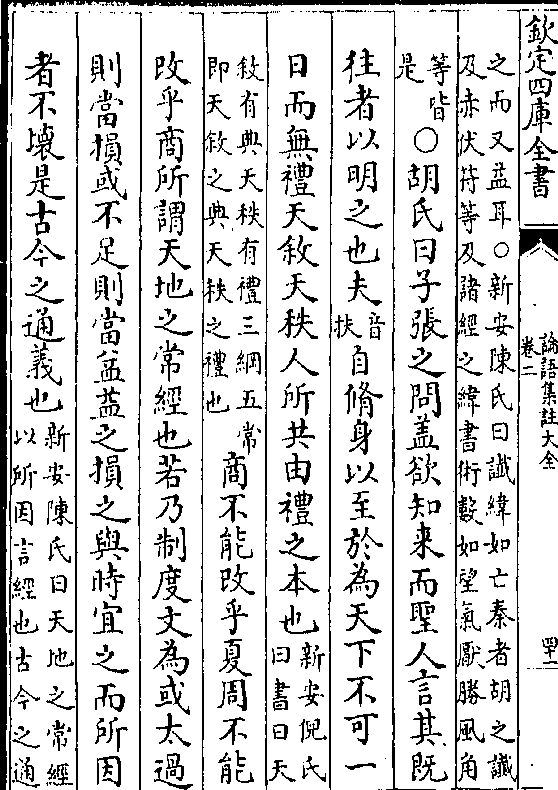 欽定四庫全書
論語集註大全
卷二
之而又益耳○新安陳氏曰讖緯如亡秦者胡之讖
及赤伏符等及諸經之緯書術數如望氣厭勝風角
等皆是○胡氏曰子張之問蓋欲知来而聖人言其既
往者以明之也夫音扶自脩身以至於為天下不可一
日而無禮天敘天秩人所共由禮之本也新安倪氏曰書曰天
敘有典天秩有禮三綱五常即天敘之典天秩之禮也商不能改乎夏周不能
改乎商所謂天地之常經也若乃制度文為或太過
則當損或不足則當益益之損之與時宜之而所因
者不壞是古今之通義也新安陳氏曰天地之常經以所因言經也古今之通